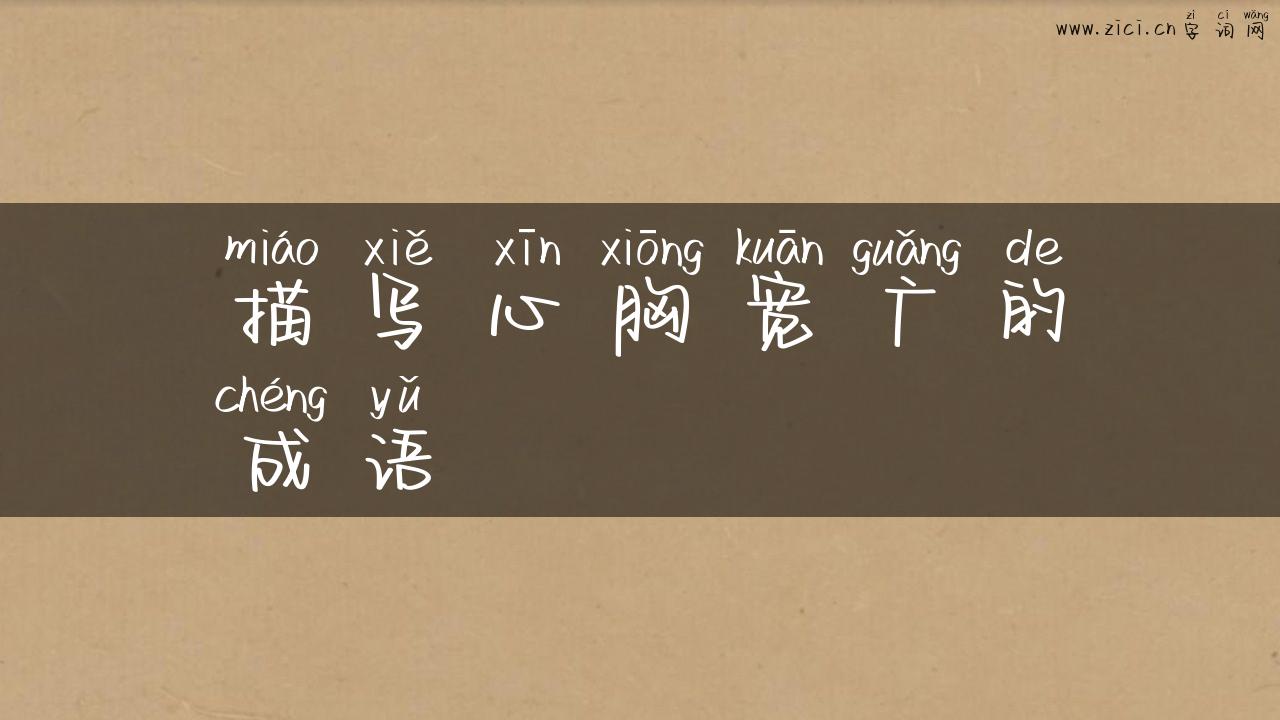 zì cí wǎng
www.zici.cn 字词网
miáo xiě xīn xiōng kuān guǎng de
描写心胸宽广的
chéng yǔ
成语